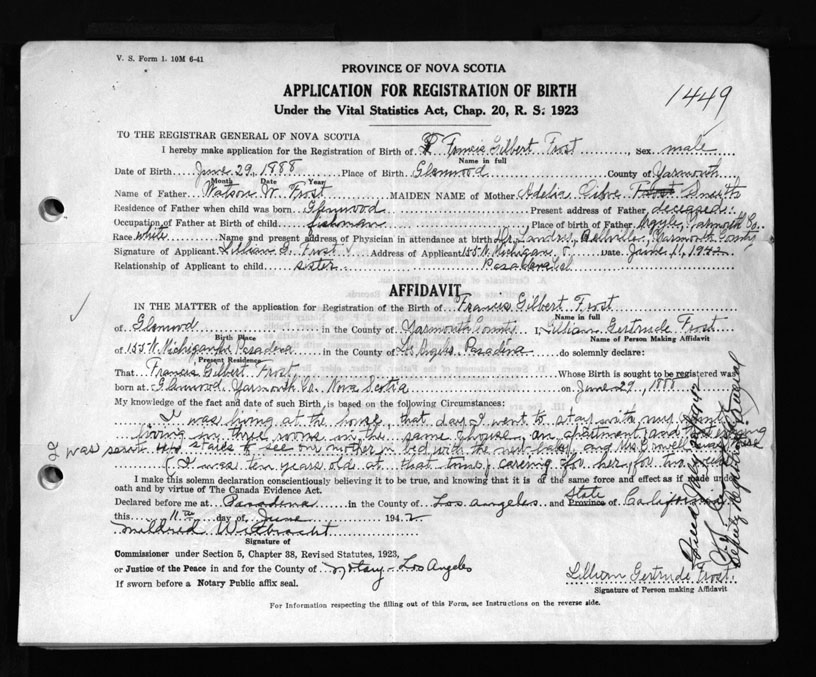 V. S. Form 1. 10M 6-41
PROVINCE OF NOVA SCOTIA
APPLICATION FOR REGISTRATION OF BIRTH
1449
Under the Vital Statistics Act, Chap. 20, R. S. 1923
TO THE REGISTRAR GENERAL OF NOVA SCOTIA
I hereby make application for the Registration of Birth of Francis Gilbert Frost, Sex male
Name in full
Date of Birth June 29, 1888 Place of Birth Glenwood County of Yarmouth
Month Date Year
Name of Father Watson W. Frost MAIDEN NAME of Mother Adelia
Residence of Father when child was born Glenwood Present address of Father deceased
Occupation of Father at Birth of child fisherman Place of Birth of Father Argyle, Yarmouth Co.
Race white Name and present address of Physician in attendance at birth Dr. Yarmouth County
Signature of Applicant Lillian G. Frost Address of Applicant 155 N. Michigan Date June 11, 1942
Relationship of Applicant to child sister Pasadena
AFFIDAVIT
IN THE MATTER of the application for Registration of the Birth of Francis Gilbert Frost
Name in full
of Glenwood in the County of Yarmouth County I, Lillian Gertrude Frost
Birth Place Name of Person Making Affidavit
of 155 N. Michigan Pasadena in the County of Los Angeles, Pasadena do solemnly declare:
Present Residence
That Francis Gilbert Frost Whose Birth is sought to be registered was
born at Glenwood Yarmouth Co. Nova Scotia on June 29, 1888
My knowledge of the fact and date of such Birth, is based on the following Circumstances:
I was living at the house, that day I went to stay with my aunt
living in three rooms in the same house, an apartment and
was sent stairs to see our mother in bed with the new baby, and Mrs
(I was ten years old at that time) caring for her, for two weeks
I make this solemn declaration conscientiously believing it to be true, and knowing that it is of the same force and effect as if made under
oath and by virtue of The Canada Evidence Act.
Declared before me at Pasadena in the County of Los Angeles and State Province of California
this 11th day of June 1942
Mildred
Signature of
Commissioner under Section 5, Chapter 38, Revised Statutes, 1923,
or Justice of the Peace in and for the County of Notary - Los Angeles
If sworn before a Notary Public affix seal.
Lillian Gertrude Frost.
Signature of Person making Affidavit
For Information respecting the filling out of this Form, see Instructions on the reverse side.
Deputy Registrar General